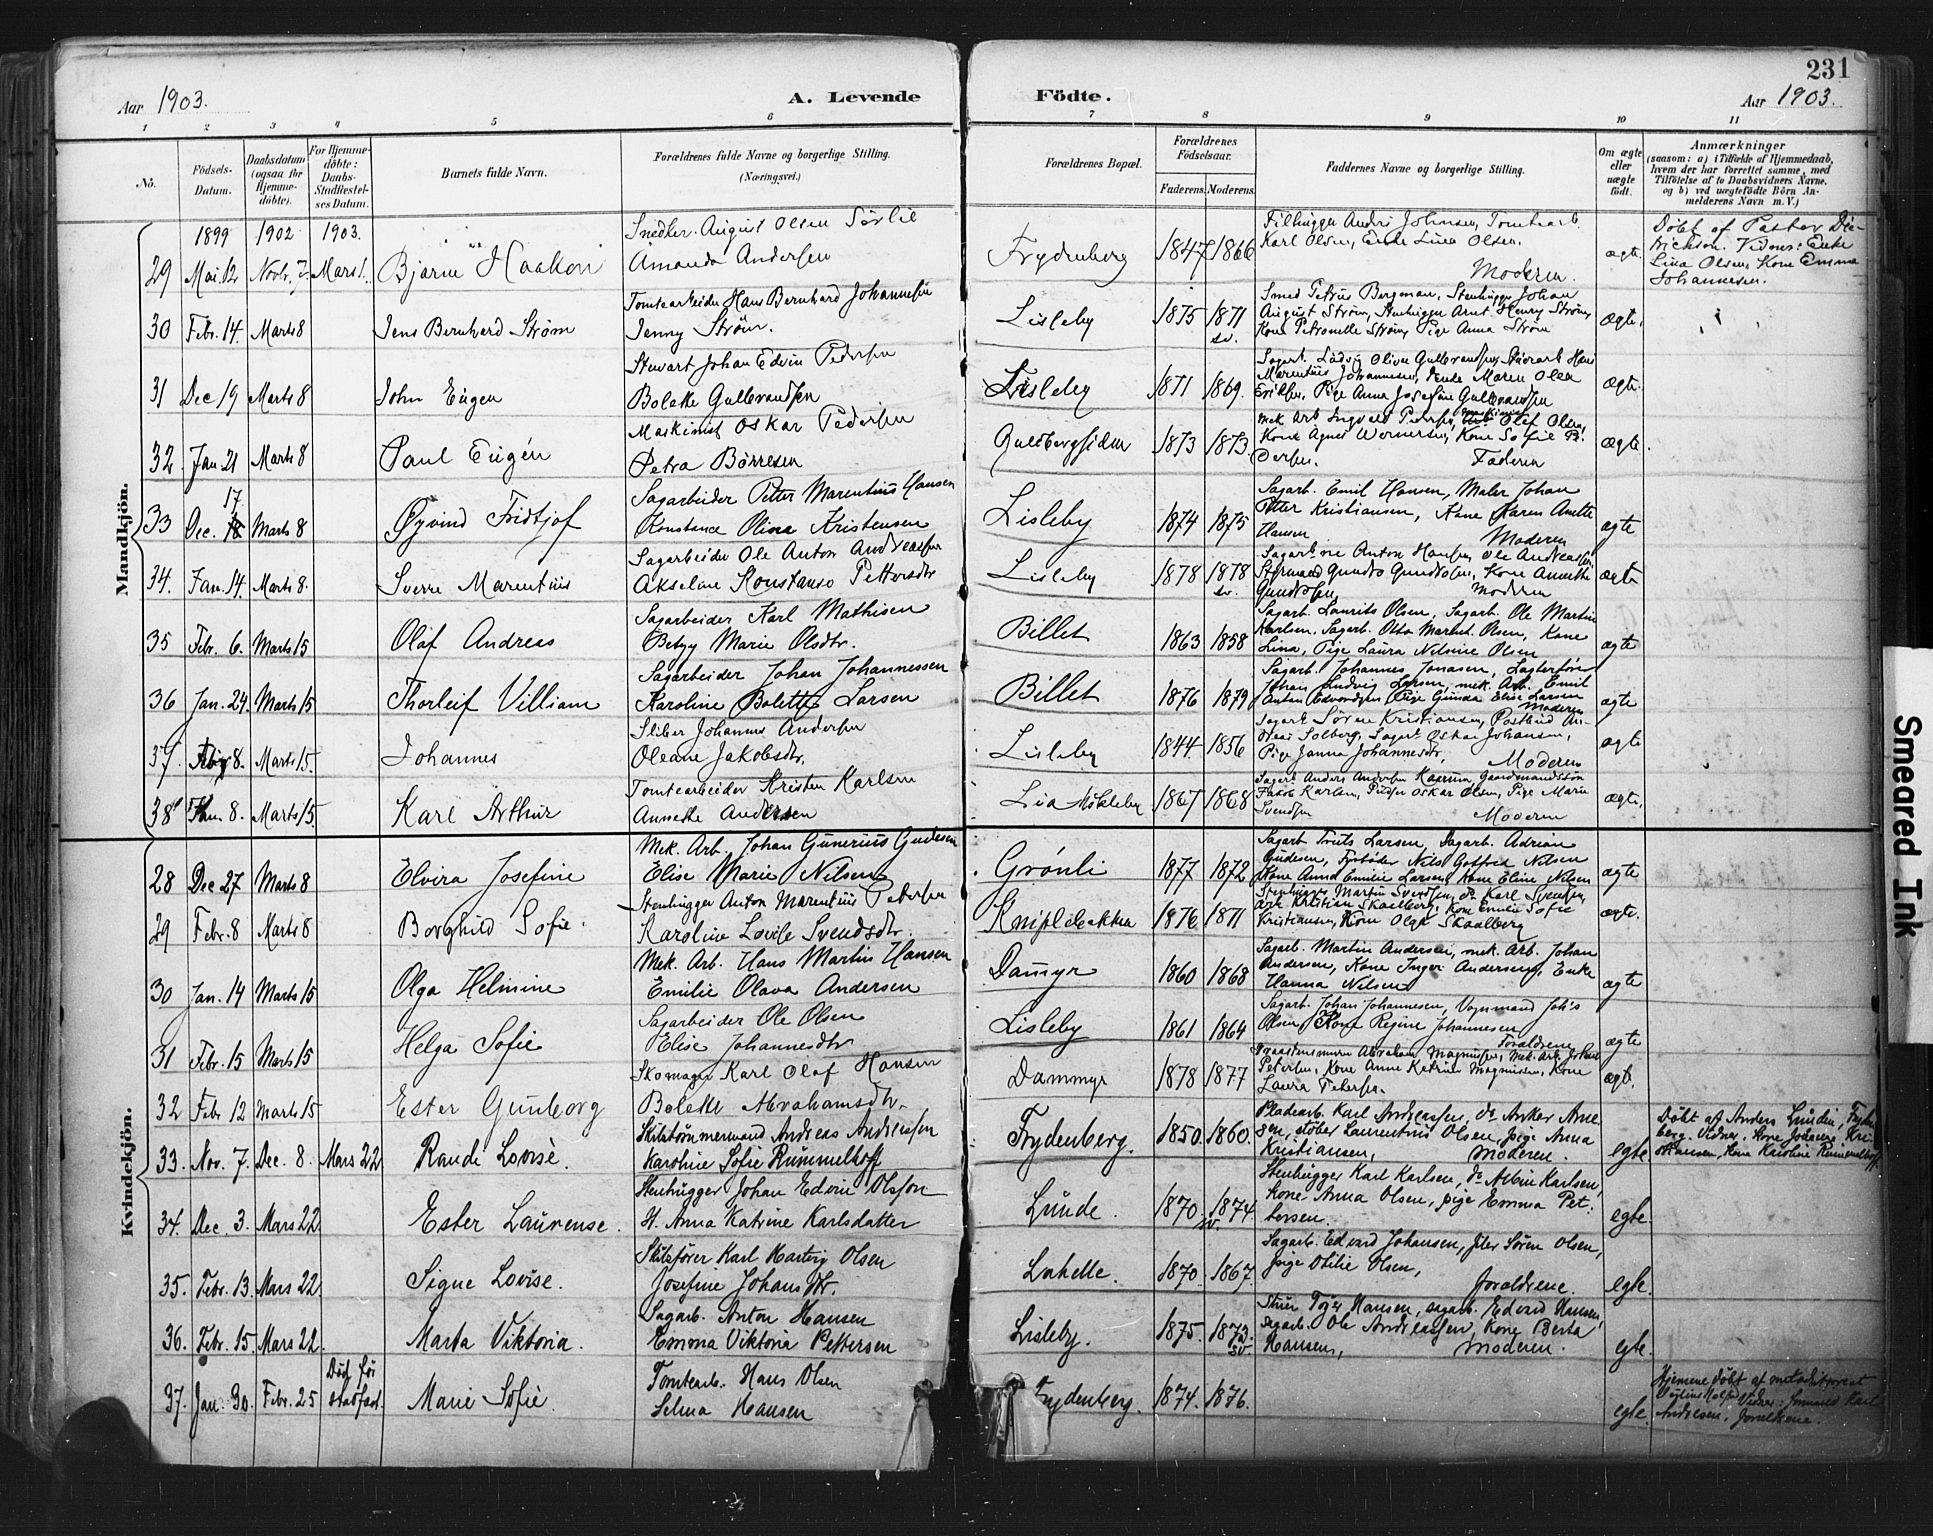 231
Aar 1903.
A. Levende Födte.
Aar 1903.
1 2 3 4 5 6 7 8 9 10 11
No.
Födsels-Datum.
Daabsdatum (ogsaa for Hjemmedöbte).
For Hjemmedöbte: Daabs-Stadfæstelses Datum.
Barnets fulde Navn.
Forældrenes fulde Navne og borgerlige Stilling. (Næringsvei.)
Forældrenes Bopæl.
Forældrenes Födselsaar.
Faderens. Moderens.
Faddernes Navne og borgerlige Stilling.
Om ægte eller uægte födt.
Anmærkninger
(saasom: a) i Tilfælde af Hjemmedaab, hvem der har forrettet samme, med Tilföielse af to Daabsvidners Navne. og b) ved uægtefödte Börn Anmelderens Navn m. V.)
Mandkjön.
1899 1902 1903.
29 Mai 12 Novbr. 7. Mars 1. Bjarne Haakon
Snedker August Olsen Sørlie
Amanda Andersen
Frydenberg 1847 1866
Karl Olsen, Enke Lina Olsen.
Moderen.
ægte.
Døbt af Pastor Diedrichson. Vidner: Enke
Lina Olsen, Kone Emma
Johannesen.
30 Febr. 14. Marts 8 Jens Bernhard Strøm
Tomtearbeider Hans Bernhard Johannesen
Jenny Strøm.
Lisleby 1875 1871 sv.
Smed Petrus Bergman, Stenhugger Johan
August Strøm, Stenhugger Arnt Henry Strøm,
Kone Petronelle Strøm, Pige Anna Strøm
ægte.
31 Dec 19 Marts 8 John Eugen
Stuart Johan Edvin Pedersen
Bolette Gulbrandsen
Lisleby 1871 1869.
Sagarb. Ludvig Oliver Gulbrandsen,
Marentius Johannesen, Enke Maren Olea
Eriksen, Pige Anna Josefine Gulbrandsen
ægte.
32 Jan 21 Marts 8 Paul Eugén
Maskinist Oskar Pedersen
Petra Børresen
Guldbergsiden 1873 1873.
Mek Arb. Ingvald Pedersen, Olaf Olsen,
Kone Agnes Wernersen, Kone Sofie Pedersen. Faderen
ægte.
33 Dec. 17 Marts 8 Øyvind Fridtjof
Sagarbeider Petter Marentius Hansen
Konstance Oline Kristensen
Lisleby 1874 1875
Sagarb. Emil Hansen, Maler Johan
Petter Kristiansen, Kone Karen Anette
Hansen Moderen
ægte
34. Jan. 14. Marts 8. Sverre Marentius
Sagarbeider Ole Anton Andreassen
Akseline Konstanse Pettersdtr
Lisleby 1878 1878 sv.
Kone Annethe
Gundersen, Moderen
ægte
35 Febr. 6. Marts 15 Olaf Andreas
Sagarbeider Karl Mathisen
Betzy Marie Olsdtr.
Billet 1863 1858
Sagarb. Laurits Olsen, Sagarb. Ole Martin
Karlsen, Sagarb. Otto Marthin Olsen, Kone
Lina, Pige Laura Nilsine Olsen
ægte
36 Jan. 24. Marts 15 Thorleif Villiam
Sagarbeider Johan Johannessen
Karoline Bolette Larsen
Billet 1876 1879
Sagarb. Johannes Jonasen,
Johan Ludvig Larsen, mek. Arb. Emil
Anton Edvardsen Pige Gunda Elise Larsen
Moderen
ægte
37. 8. Marts 15. Johannes
Sliber Johannes Andersen
Oleane Jakobsdtr.
Lisleby 1844 1856
Sagarb. Søren Kristiansen, Postbud Andreas Solberg, Sagarb. Oskar Johansen,
Pige Janna Johannesdtr. Moderen
ægte
38 8. Marts 15. Karl Arthur
Tomtearbeider Kristen Karlsen
Annette Andersen
Lia Mikleby 1867 1868
Jakob Karlsen, Oskar Olsen, Pige Marie
Svendsen Moderen
ægte.
Kvindekjön.
28 Dec 27 Marts 8 Elvira Josefine
Mek. Arb. Johan Gunerius Gudesen
Elise Marie Nilsen
Grønli 1877 1872
Sagarb. Truls Larsen, Sagarb. Adrian
Gudesen, Fyrbøder Nils Gotfred Nilsen
Kone Anna Emilie Larsen, Kone Eline Nilsen
ægte
29 Febr. 8 Marts 8 Borghild Sofie.
Stenhugger Anton Marentius Pedersen
Karoline Lovise Svendsdtr.
Kniplebakken 1876 1871
Stenhugger Martin Svendsen, do Karl Svendsen,
Arb Kristian Skaalberg, Kone Emilie Sofie
Kristiansen, Kone Olga Skaalberg
ægte.
30 Jan. 14 Marts 15 Olga Helmine
Mek. Arb. Hans Martin Hansen
Emilie Olava Andersen
Dammyr 1860 1868
Sagarb. Martin Andersen, mek. Arb. Johan
Andersen, Kone Inger Andersen, Enke
Hanna Nilsen
ægte
31 Febr. 15 Marts 15 Helga Sofie
Sagarbeider Ole Olsen
Elise Johannesdtr
Lisleby 1861 1864
Sagarb. Johan Johannesen, Vognmand Johs
Olsen, Kone Regine Johannesen
Forældrene
ægte
32 Febr 12 Marts 15 Ester Gunborg
Skomager Karl Olaf Hansen
Bolette Abrahamsdtr.
Dammyr 1878 1877
Abraham Magnussen, Mek. Arb. Johan
Petersen, Kone Anne Katrine Magnussen, Kone
Laura Petersen.
ægt.
33. Nov. 7. Dec. 8. Mars 22 Randi Lovise.
Skibstømmermand Andreas Andreassen
Karoline Sofie Rummelhoff
Frydenberg. 1850. 1860.
Pladearb. Karl Andreassen, do Anker Arnesen, støber Laurentius Olsen, pige Anna
Kristiansen, moderen.
egte.
Døbt af Anders Lundin, Frydenberg. Vidner: Kone Kristiansen, Kone Karoline Rummelhoff
34. Dec. 3. Mars 22 Ester Laurense.
Stenhugger Johan Edvin Olsson
H. Anna Katrine Karlsdatter
Lunde. 1870. 1874. sv
Stenhugger Karl Karlsen, do Albin Karlsen,
Kone Anna Olsen, pige Emma Pettersen.
egte.
35. Febr. 13. Mars 22 Signe Lovise.
Skibsfører Karl Hartvig Olsen
Josefine Johansdtr.
Lahelle. 1870. 1867.
Sagarb. Edvard Johansen, Søren Olsen,
pige Otilie Olsen, foraldrene.
egte.
36. Febr. 15. Mars 22. Marta Viktoria.
Sagarb. Anton Hansen
Emma Viktoria Pettersen
Lisleby. 1875. 1873. sv.
Hansen, sagarb. Edvard Hansen,
sagarb. Ole Andreassen, Kone Berta
Hansen, moderen.
egte.
37. Jan. 30. Febr. 25 Død før stadfæst. Marie Sofie.
Tomtearb. Hans Olsen
Selma Hansen
Frydenberg. 1874. 1876.
egte.
Hjemme døbt af metodistprest
Vidner: Karl
Andresen, foraldrene.
Smeared Ink